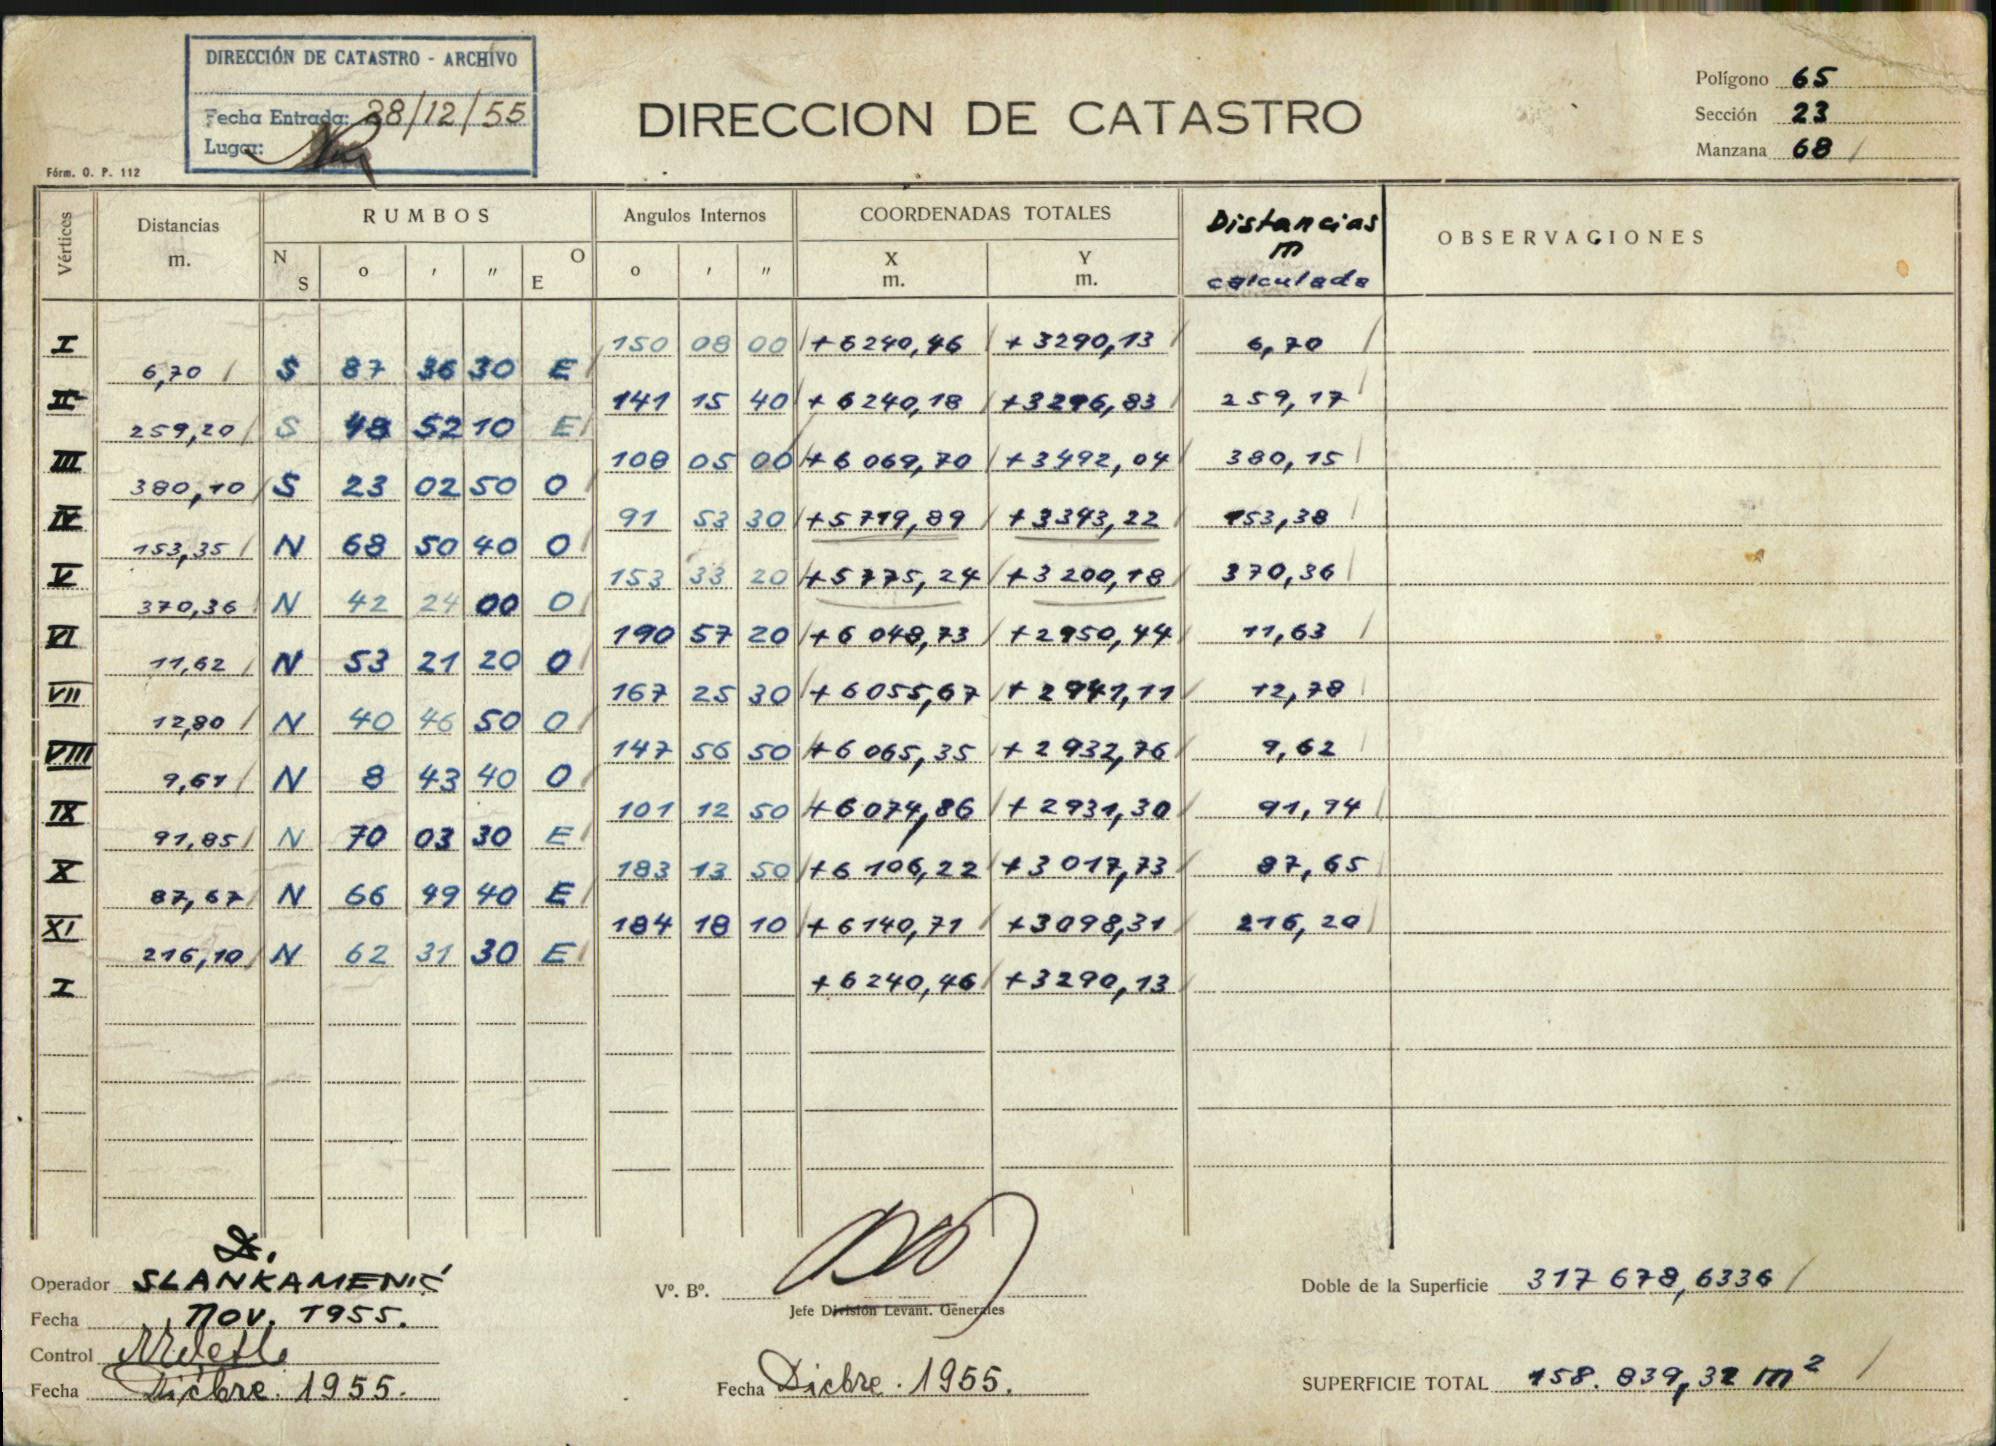 DIRECCIÓN DE CATASTRO - ARCHIVO
Fecha Entrada: 28/12/55
Lugar:
Fórm. O. P. 112
DIRECCION DE CATASTRO
Polígono 65
Sección 23
Manzana 68
Vértices Distancias m. RUMBOS Angulos Internos COORDENADAS TOTALES Distancias m calculada OBSERVACIONES
N S o ' " O E o ' " X m. Y m.
I 150 08 00 +6240,46 +3290,13 6,70
6,70 S 87 36 30 E
II 141 15 40 +6240,18 +3296,83 259,17
259,20 S 48 52 10 E
III 108 05 00 +6069,70 +3492,04 380,15
380,10 S 23 02 50 O
IV 91 53 30 +5719,89 +3343,22 153,38
153,35 N 68 50 40 O
V 153 33 20 +5775,24 +3200,18 370,36
370,36 N 42 24 00 O
VI 190 57 20 +6048,73 +2950,44 11,63
11,62 N 53 21 20 O
VII 167 25 30 +6055,67 +2941,11 12,78
12,80 N 40 46 50 O
VIII 147 56 50 +6065,35 +2932,76 9,62
9,61 N 8 43 40 O
IX 101 12 50 +6074,86 +2931,30 91,94
91,85 N 70 03 30 E
X 183 13 50 +6106,22 +3017,73 87,65
87,67 N 66 49 40 E
XI 184 18 10 +6140,71 +3098,31 216,20
216,10 N 62 31 30 E
I +6240,46 +3290,13
Operador SLANKAMENIĆ
Fecha Nov. 1955.
Control
Fecha Dicbre. 1955.
Vº. Bº.
Jefe División Levant. Generales
Fecha Dicbre. 1955.
Doble de la Superficie 317 678,6336
SUPERFICIE TOTAL 158.839,32 m²